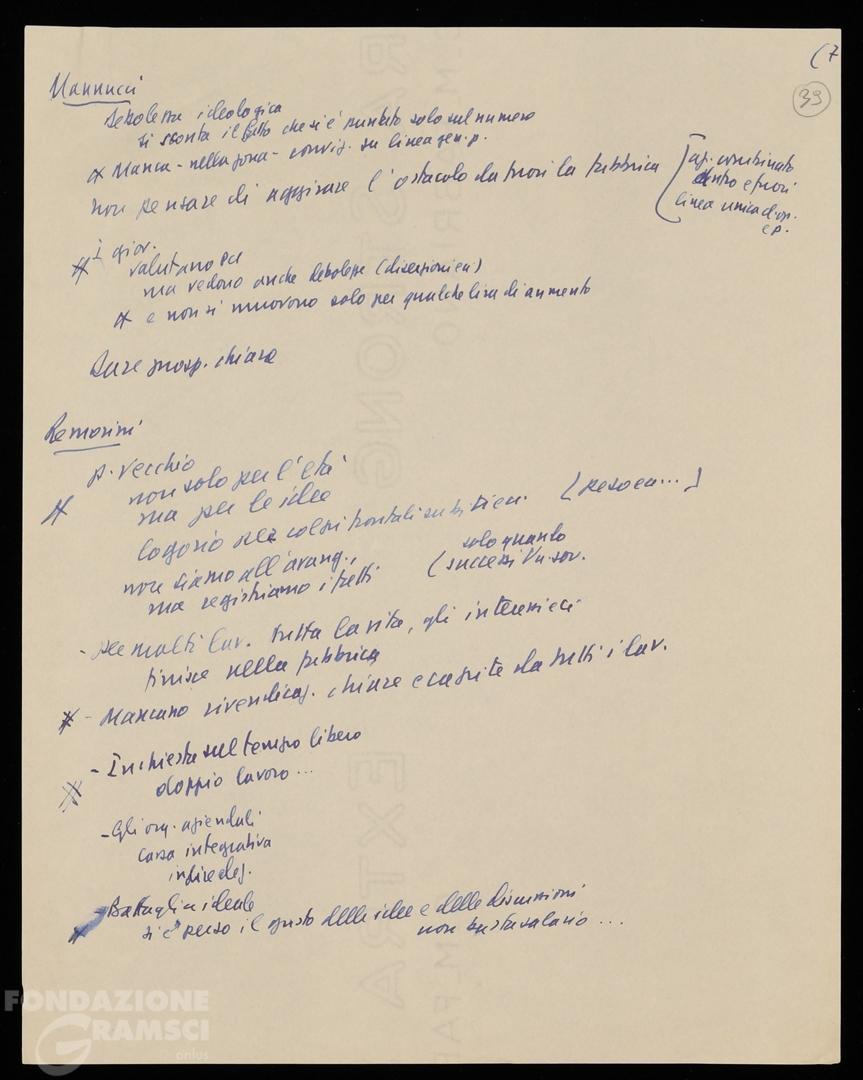 (7
39
Mannucci
Debolezza ideologica
si sconta il fatto che si è puntato solo sul numero
* Manca - nella zona - conviz. su linea gen. p.
non pensare di aggirare l'ostacolo da fuori la fabbrica
az. combinato
dentro e fuori
linea unica d'op.
e p.
* I giov.
valutano PCI
ma vedono anche debolezze (discussioni ecc)
* e non si muovono solo per qualche lira di aumento
Dare prosp. chiare
Remorini
p. vecchio
non solo per l'età
* ma per le idee
logorio per colpi frontali
non siamo all'avang.,
ma registriamo i fatti
(solo quando
successi Un. sov.
- per molti lav. tutta la vita, gli interessi ecc
finisce nella fabbrica
* - Mancano rivendicaz. chiare e capite da tutti i lav.
* - Inchiesta sul tempo libero
doppio lavoro ...
- Gli org. aziendali
cassa integrativa
infine deleg.
* - Battaglia ideale
si è perso il gusto delle idee e delle discussioni
non basta salario ...
FONDAZIONE
GRAMSCI
onlus